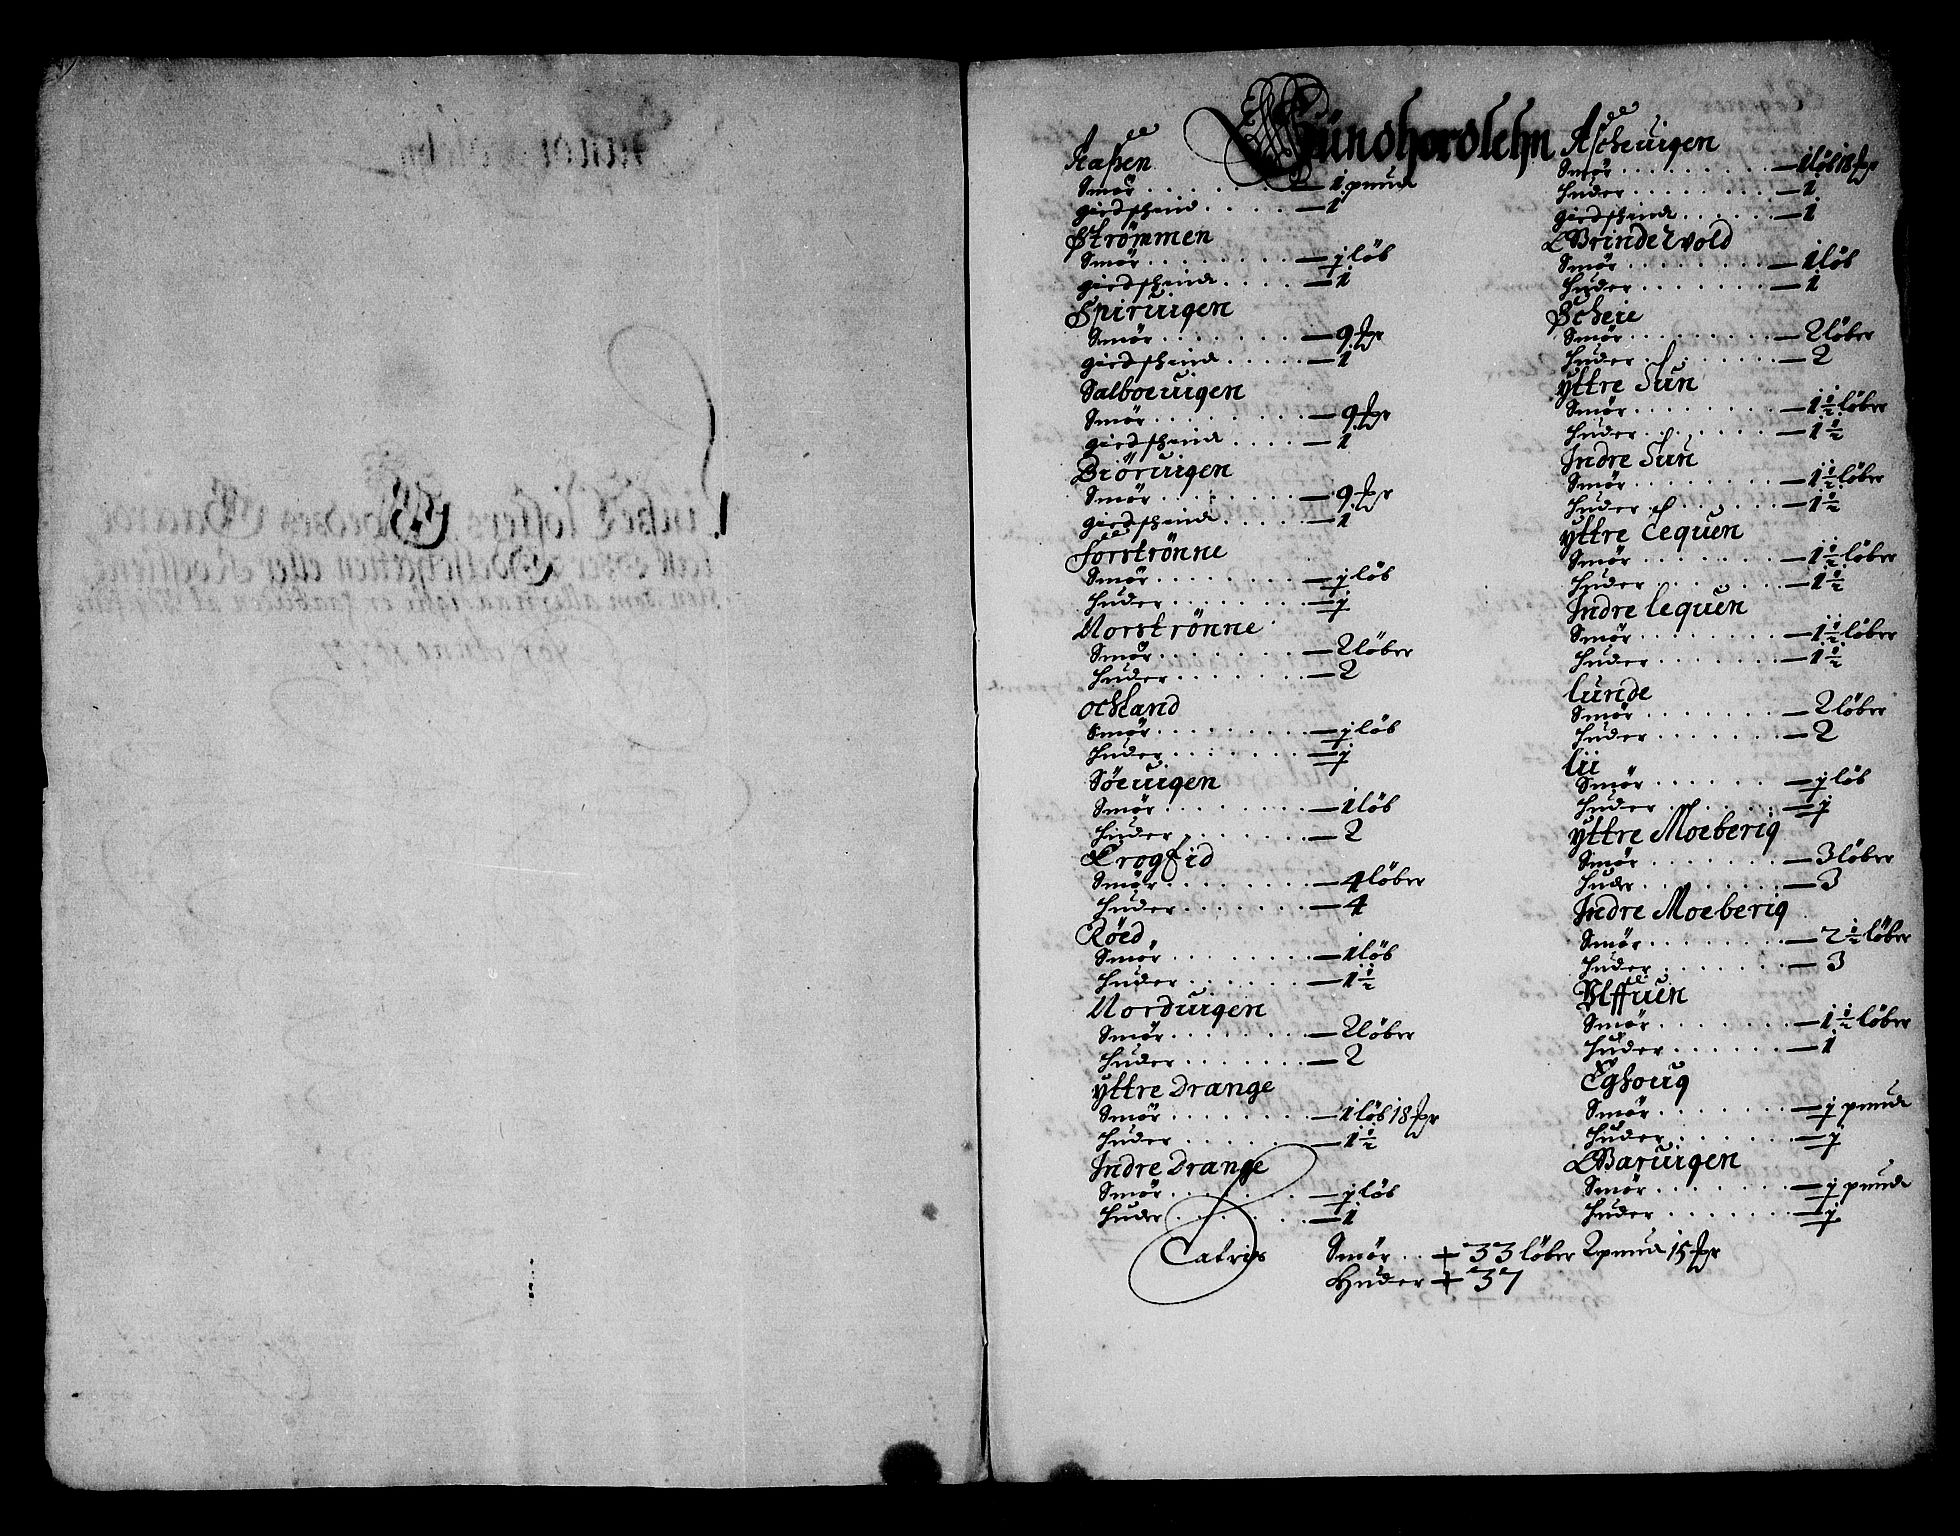 Sündhordlehn
Aaßen
Smør — 1 pund
giedschind — 1
Strømmen
Smør — j løb
giedschind — 1
Spiruigen
Smør — 9 pr
giedschind — 1
Salboeuigen
Smør — 9 pr
giedschind — 1
Biöruigen
Smør — 9 pr
giedschind — 1
förströnne
Smør — j løb
Huder — j
Norströnne
Smør — 2 løber
Huder — 2
ochland
Smør — j løb
Huder — j
Söeuigen
Smør — 1 løb
Huder — 2
Krogfid
Smør — 4 løber
Huder — 4
Röed
Smør — 1 løb
Huder — 1½
Norduigen
Smør — 2 løber
Huder — 2
yttre Drange
Smør — 1 løb 18 pr
Huder — 1½
Indre Drange
Smør — j løb
Huder — 1
Ascheuigen
Smør — 1 løb 18 pr
Huder — 1
giedschind — 1
Brindelvold
Smør — 1 løb
Huder — 1
Scheie
Smør — 2 løber
Huder — 2
yttre Sün
Smør — 1½ løber
Huder — 1½
Indre Sün
Smør — 1½ løber
Huder — 1½
yttre Lequen
Smør — 1½ løber
Huder — 1½
Indre lequen
Smør — 1½ løber
Huder — 1½
lunde
Smør — 2 løber
Huder — 2
lii
Smør — j løb
Huder — j
yttre Moeberig
Smør — 3 løber
Huder — 3
Indre Moeberig
Smør — 2½ løber
Huder — 3
Ulffuen
Smør — 1½ løber
Huder — 1
Eghoug
Smør — j pund
Huder — j
Baruigen
Smør — j pund
Huder — j
Latris Smør — 33 løber 2 pund 15 pr
Huder — 37